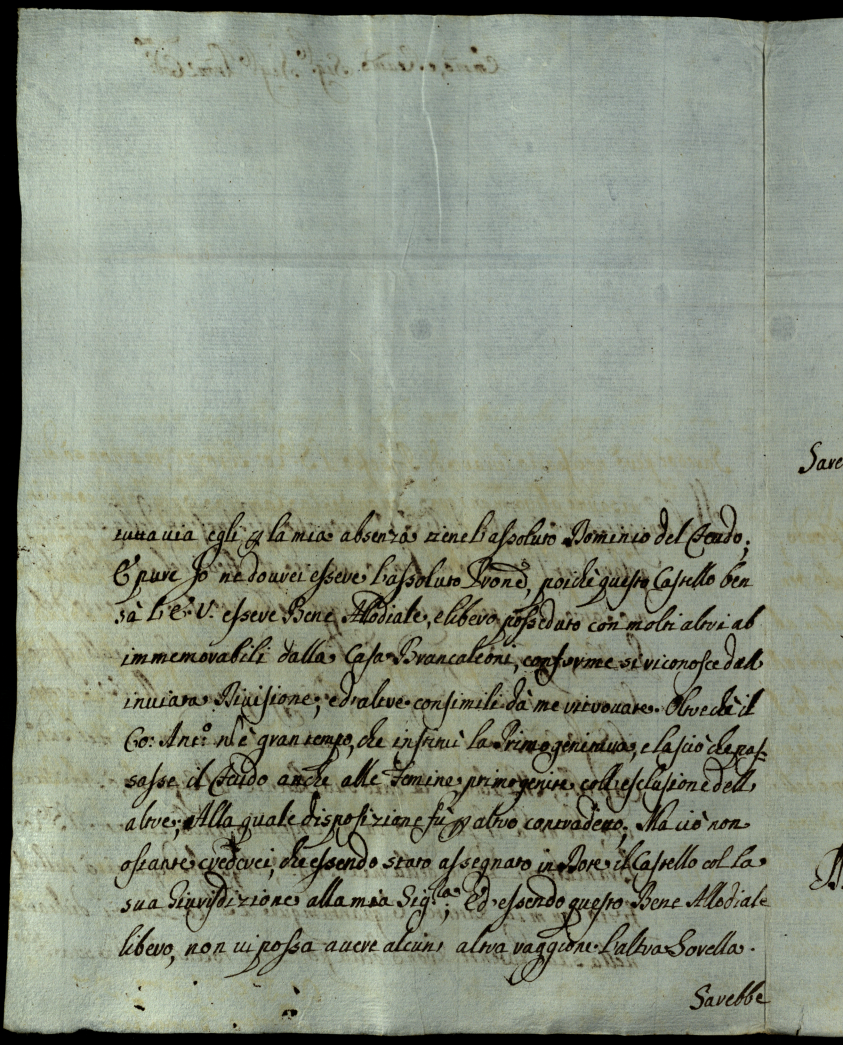 tuttavia egli p la mia absenza tiene l'assoluto Dominio del Feudo;
E pure Io ne dovrei essere l'assoluto Prone, poiche questo Castello ben
sà l'E. V. essere Bene Allodiale, e libero posseduto con molti altri ab
immemorabili dalla Casa Brancaleoni, conforme si riconosce dall
inviata Divisione, ed altre consimili da me ritrovate. Oltre che il
Co: Ant.º n'è gran tempo, che institui la Primogenitura, e lasciò che pas-
sasse il Feudo anche alle Femine primogenite coll'esclusione dell
altre; Alla quale disposizione fù p altro contradetto; Ma ciò non
ostante crederei, che essendo stato assegnato in Dote il Castello col la
sua Giurisdizione alla mia Sig.ra, Ed essendo questo Bene Allodiale
libero, non vi possa avere alcuna altra raggione l'altra Sorella.
Sarebbe
Sare